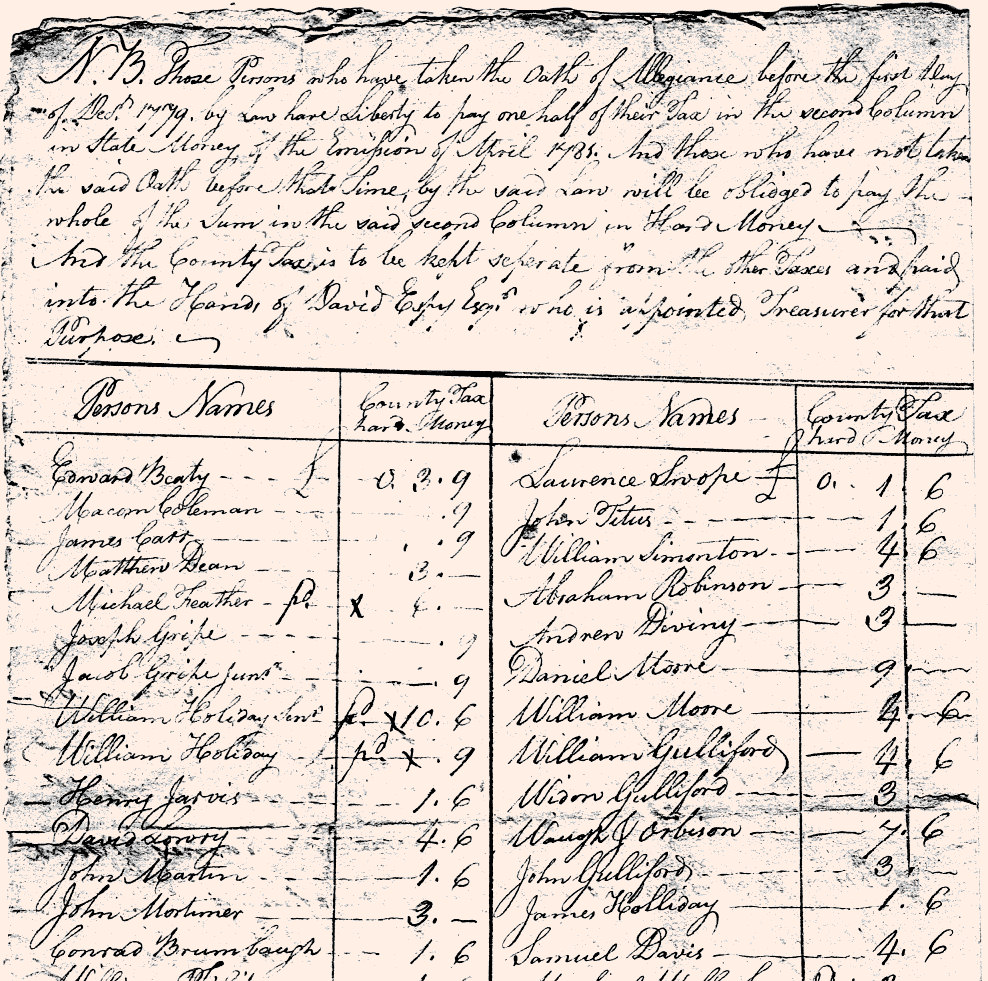 N.B. Those Persons who have taken the Oath of Allegiance before the first Day
of Decr. 1779. by Law have Liberty to pay one half of their Tax in the second Column
in State Money of the Emission of April 1781. And those who have not taken
the said Oath before that Time, by the said Law will be oblidged to pay the
whole of the Sum in the said second Column in Hard Money
And the County Tax is to be kept seperate from the other Taxes and paid
into the Hands of David Espy Esqr. who is appointed Treasurer for that
Purpose.
Persons Names County Tax Persons Names County Tax
hard Money hard Money
Edward Beaty £ 0. 3. 9 Laurence Swope £ 0. 1. 6
Macom Coleman .9 John Titus 1. 6
James Carr .9 William Simonton 4. 6
Matthew Dean 3. — Abraham Robinson 3 —
Michael Feather pd. x Andrew Diviny 3 —
Joseph Gripe . 9 Daniel Moore 9. —
Jacob Gripe Junr. . 9 William Moore 4. 6
William Holiday Senr. pd. x 10. 6 William Gulliford 4. 6
William Holiday pd. x . 9 Widow Gulliford 3 —
Henry Jarvis 1. 6 Waugh & Orbison 7. 6
David Lowry 4. 6 John Gulliford 3. —
John Martin 1. 6 James Holliday 1. 6
John Mortimer 3. — Samuel Davis 4. 6
Conrad Brumbaugh 1. 6